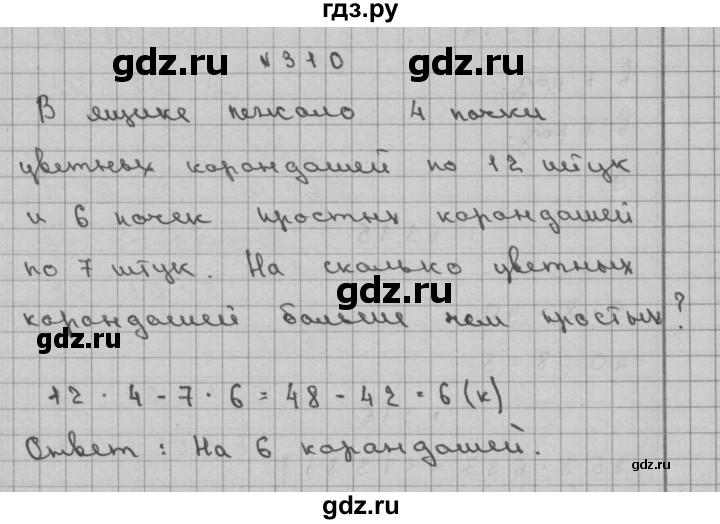 гдз.ру
№310
gdz.ru gdz.ru
В ящике лежало 4 пачки
цветных карандашей по 12 штук
и 6 пачек простых карандашей
по 7 штук. На сколько цветных
gdz.ru
карандашей больше чем простых?
gdz.ru
12 · 4 - 7 · 6 = 48 - 42 = 6 (к)
Ответ: На 6 карандашей.
gdz.ru
gdz.ru